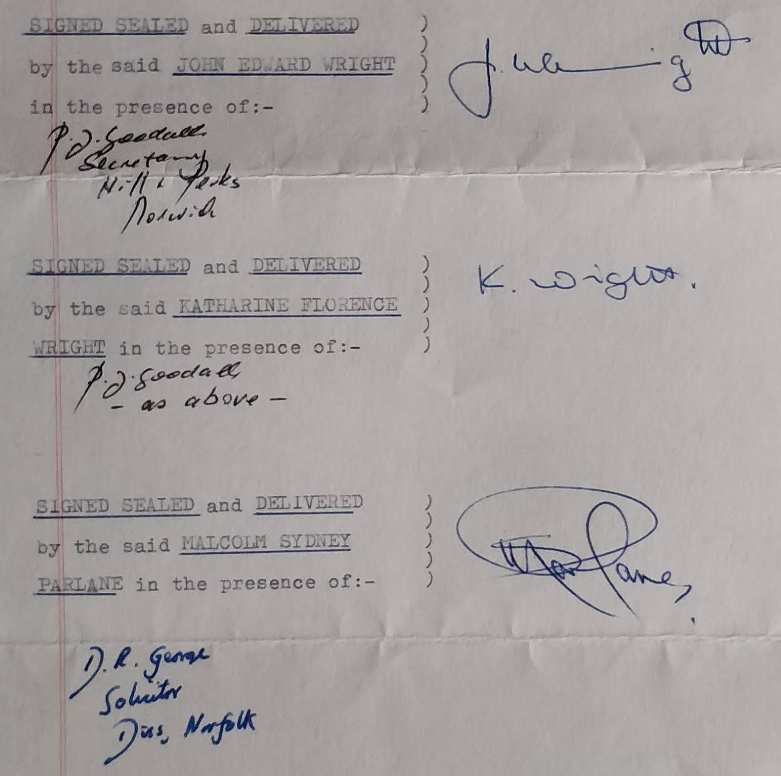 SIGNED SEALED and DELIVERED )
by the said JOHN EDWARD WRIGHT ) J. Wright
in the presence of:- )
P. J. Goodall
Secretary
Hill & Perks
Norwich
SIGNED SEALED and DELIVERED )
by the said KATHARINE FLORENCE ) K. Wright.
WRIGHT in the presence of:- )
P. J. Goodall
- as above -
SIGNED SEALED and DELIVERED )
by the said MALCOLM SYDNEY )
PARLANE in the presence of:- ) Parlane
D. R. George
Solicitor
Diss, Norfolk